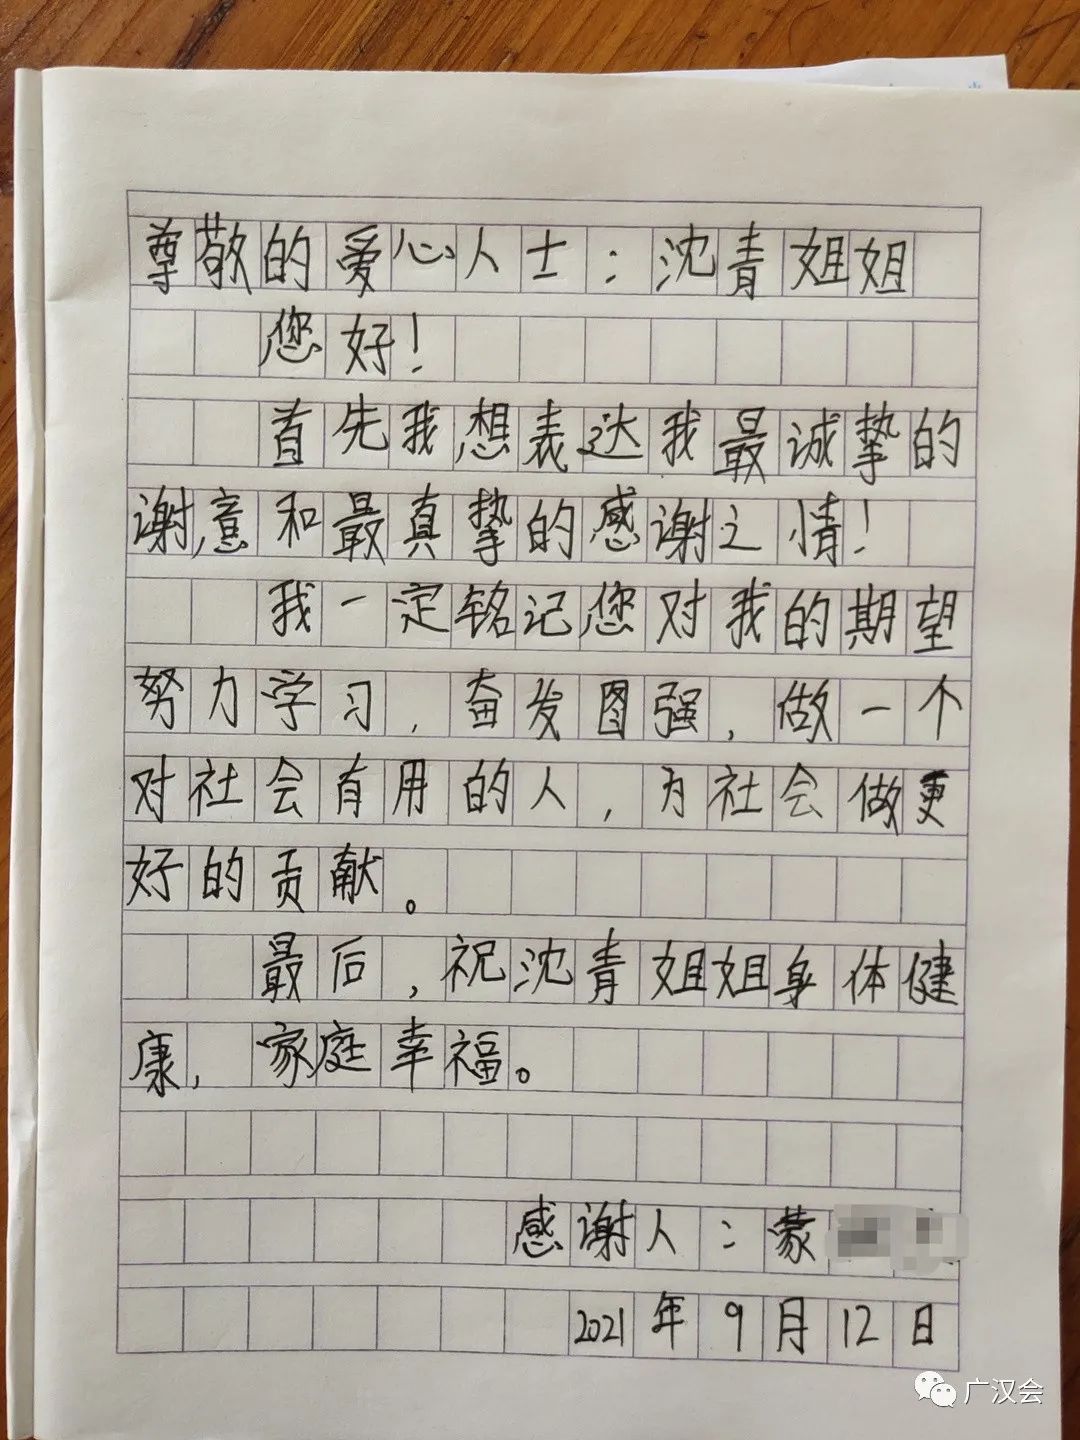 尊敬的爱心人士：沈青姐姐
您好！
首先我想表达我最诚挚的
谢意和最真挚的感谢之情！
我一定铭记您对我的期望
努力学习，奋发图强，做一个
对社会有用的人，为社会做更
好的贡献。
最后，祝沈青姐姐身体健
康，家庭幸福。
感谢人：蒙
2021年9月12日
广汉会